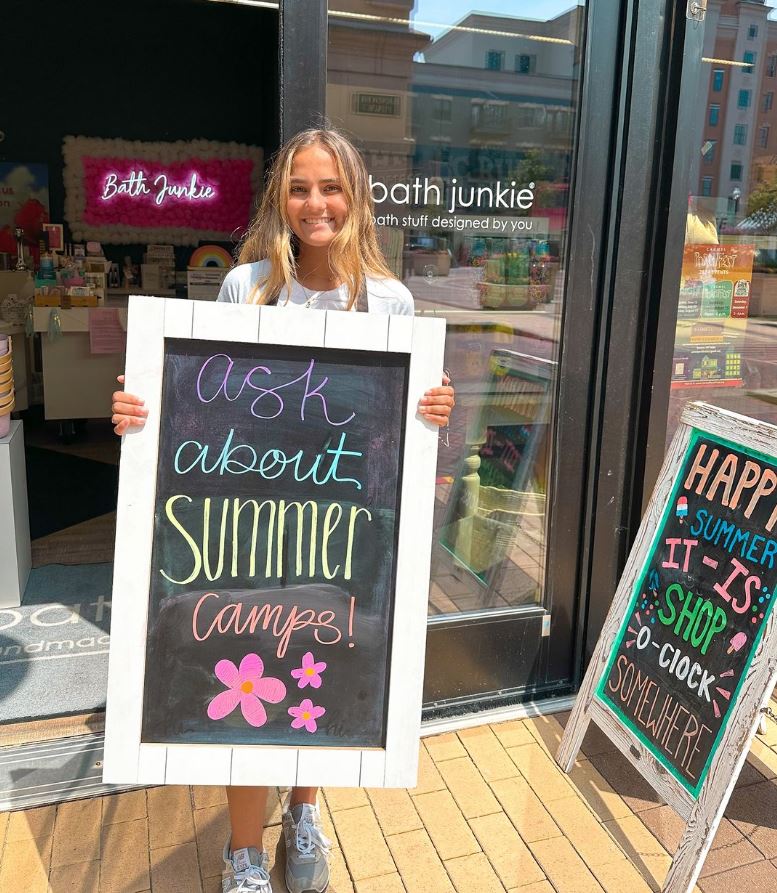 Bath Junkie
bath junkie
bath stuff designed by you
ask
about
Summer
Camps!
HAPPY
SUMMER
IT-IS
SHOP
O-CLOCK
SOMEWHERE